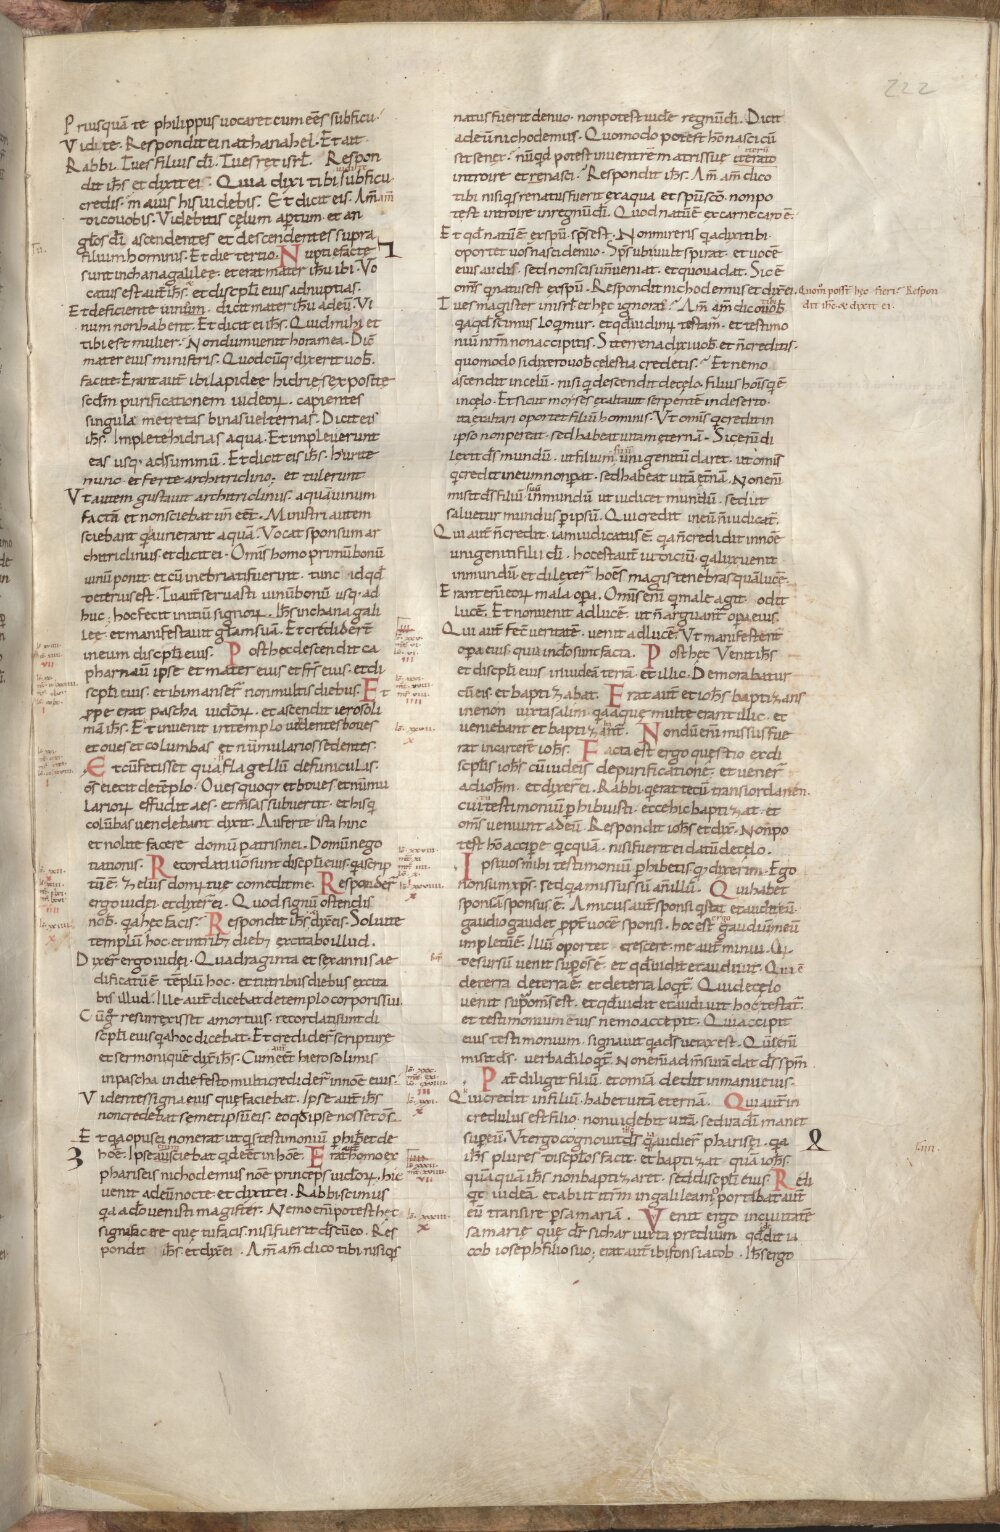 222
Priusquā te philippus uocaret cum eēs sub ficu
Vidi te. Respondit ei nathanahel. Et ait.
Rabbi. Tu es filius dī. Tu es rex isrl̄. Respon
dit ih̄s et dixit ei. Quia dixi tibi sub ficu
credis. maius his uidebis. Et dicit eis. Am̄ am̄
dico uobis. Videbitis cęlum aptum et an
glos dī ascendentes et descendentes supra
filium hominis. Et die tertio. Nuptię factę
sunt in chana galileę. et erat mater ih̄u ibi. Vo
catus est aut̄ ih̄s. et discpli eius ad nuptias.
Et deficiente uinum. dicit mater ih̄u ad eū. Vi
num non habent. Et dicit ei ih̄s. Quid mihi et
tibi est mulier. Nondum uenit hora mea. Dic̄
mater eius ministris. Quodcūq; dixerit uob̄.
facite. Erant aut̄ ibi lapideę hidrię sex positę
scdm purificationem iudeoꝝ. capientes
singulę metretas binas uel ternas. Dicit eis
ih̄s. Implete hidrias aqua. Et impleuerunt
eas usq; ad summū. Et dicit eis ih̄s. Haurite
nunc et ferte architriclino. et tulerunt
Vt autem gustauit architriclinus. aquā uinum
factā et non sciebat un̄ eēt. Ministri autem
sciebant q̄ aurierant aquā. Vocat sponsum ar
chitriclinus et dicit ei. Omis homo primū bonū
uinū ponit. et cū inebriati fuerint. tunc id qd̄
deterius est. Tu aut̄ seruasti uinū bonū usq; ad
huc. hoc fecit initiū signoꝝ. Ih̄s in chana gali
leę. et manifestauit glam suā. Et crediderūt
in eum discpli eius. Post hoc descendit ca
pharnaū ipse et mater eius et frs̄ eius. et di
scpli eius. et ibi manser̄ non multis diebus. Et
ppe erat pascha iudoꝝ. et ascendit ierosoli
ma ih̄s. Et inuenit in templo uendentes boues
et oues et columbas et nūmularios sedentes.
Et cū fecisset quasi flagellū de funiculis.
os̄ eiecit de tēplo. Oues quoq; et boues et nūmu
larioꝝ effudit aes. et m̄sas subuertit. et his q
colūbas uendebant dixit. Auferte ista hinc
et nolite facere domū patris mei. Domū nego
tiationis. Recordati uō sunt discpli eius. qa scrip
tū ē. Zelus domꝰ tuę comedit me. Responder̄
ergo iudei. et dixer̄ ei. Quod signū ostendis
nob̄. qa hęc facis. Respondit ih̄s et dix̄ eis. Soluite
templū hoc. et in trib; dieb; excitabo illud.
Dixer̄ ergo iudei. Quadraginta et sex annis ae
dificatū ē tēplū hoc. et tu tribus diebus excita
bis illud. Ille aut̄ dicebat de templo corporis sui
Cū g̊ resurrexisset a mortuis. recordati sunt di
scpli eius qa hoc dicebat. Et credider̄ scripturę
et sermoni quē dix̄ ih̄s. Cum eēt hierosolimis
in pascha in die festo multi credider̄ in noē eius.
Videntes signa eius quę faciebat. Ipse aut̄ ih̄s
non credebat semetipsū eis. eo qd̄ ipse nosset os̄.
Et qa opus ei non erat ut qs testimoniū phiberet de
hoē. Ipse enim sciebat qd̄ eēt in hoē. Erat aut̄ homo ex
phariseis nichodemus noē princeps iudoꝝ. hic
uenit ad eū nocte. et dixit ei. Rabbi scimus
qa a do uenisti magister. Nemo em̄ potest hęc
signa facere quę tu facis. nisi fuerit ds̄ cū eo. Res
pondit ih̄s et dix̄ ei. Am̄ am̄ dico tibi nisi qs
natus fuerit denuo. non potest uidē regnū dī. Dicit
ad eū nichodemus. Quomodo potest hō nasci cū
sit senex. nūqd potest in uentrem matris suę iterato
introire et renasci. Respondit ih̄s. Am̄ am̄ dico
tibi nisi qs renatus fuerit ex aqua et spū sc̄o. non po
test introire in regnū dī. Quod natū ē ex carne caro ē.
Et qd̄ natū ē ex spū. sps̄ est. Non mireris qa dixi tibi
oportet uos nasci denuo. Sps̄ ubi uult spirat. et uocē
eius audis. sed non scis un̄ ueniat. et quo uadat. Sic ē
omis̄ q natus est ex spū. Respondit nichodemus et dix̄ ei.
Quom̄ poss̄t hęc fieri. Respon
dit ih̄c & dixit ei.
Tu es magister in isrl̄ et hęc ignoras. Am̄ am̄ dico uob̄
qa qd̄ scimus loqimur. et qd̄ uidim; testam̄. et testimo
niū nrm̄ non accipitis. Si terrena dixi uob̄. et n̄ creditis.
quomodo si dixero uob̄ cęlestia credetis. Et nemo
ascendit in cęlū. nisi q descendit de cęlo. filius hoīs q ē
in cęlo. Et sicut moyses exaltauit serpentē in deserto.
ita exaltari oportet filiū hominis. Vt omis̄ q credit in
ipso non pereat. sed habeat uitam ęternā. Sic enī di
lexit ds̄ mundū. ut filium suū unigenitū daret. ut omis
q credit in eum non pereat. sed habeat uitā ęt̄nā. Non enī
misit ds̄ filiū suū in mundū ut iudicet mundū. sed ut
saluetur mundus p ipsū. Qui credit in eū n̄ iudicat̄.
Qui aut̄ n̄ credit. iam iudicatus ē. qa n̄ credidit in noē
unigeniti filii dī. hoc est aut̄ iudiciū. qa lux uenit
in mundū. et dilexer̄ hoēs magis tenebras quā lucē.
Erant enī eoꝝ mala opa. Omis enī q male agit odit
lucē. Et non uenit ad lucē. ut n̄ arguant̄ opa eius.
Qui aut̄ fec̄ ueritatē. uenit ad lucē. Vt manifestent̄
opa eius. quia in dō sunt facta. Post hęc Venit ih̄s
et discpli eius in iudeā terrā. et illic. Demorabatur
cū eis. et baptizabat. Erat aut̄ et iohs̄ baptizans
in enon iuxta salim. qa aquę multę erant illic. et
ueniebant et baptizabant̄. Nondū enī missus fue
rat in carcerē iohs̄. Facta est ergo questio ex di
scplis iohs̄ cū iudeis de purificatione. et uener̄
ad iohm̄. et dixer̄ ei. Rabbi q erat tecū trans iordanen.
cui tu testimoniū phibuisti. ecce hic baptizat. et
oms̄ ueniunt ad eū. Respondit iohs̄ et dix̄. Non po
test hō accipe qcquā. nisi fuerit ei datū de cęlo.
Ipsi uos mihi testimoniū phibetis q dixerim. Ego
non sum xps̄. sed qa missus sū an̄ illū. Qui habet
sponsā sponsus ē. Amicus aut̄ sponsi q stat et audit eū.
gaudio gaudet ppt̄ uocē sponsi. hoc est ergo gaudiū meū
impletū ē. Illū oportet crescere. me aut̄ minui. Qi
desursū uenit supōs ē. et qd̄ uidit et audiuit. Qui ē
de terra de terra ē. et de terra loqt̄. Qui de cęlo
uenit sup oms̄ est. et qd̄ uidit et audiuit hoc testat̄.
et testimonium eius nemo accepit. Qui accipit
eius testimonium. signauit qa ds̄ uerax est. Quē enī
misit ds̄. uerba dī loqt̄. Non enī ad m̄surā dat ds̄ spm̄.
Pat̄ diligit filiū. et omīa dedit in manu eius.
Qui credit in filiū. habet uitā eternā. Qui aut̄ in
credulus est filio. non uidebit uitā. sed ira dī manet
sup eū. Vt ergo cognouit ih̄s qa audier̄ pharisei. qa
ih̄s plures discplos facit. et baptizat quā iohs̄.
quāquā ih̄s non baptizaret. sed discpli eius. Reli
qt iudeā. et abiit itm̄ in galileam. oportebat aut̄
eū transire p samariā. Venit ergo in ciuitatē
samarię quę dr̄ sichar iuxta predium qd̄ dedit ia
cob ioseph filio suo. erat aut̄ ibi fons iacob. Ih̄s ergo